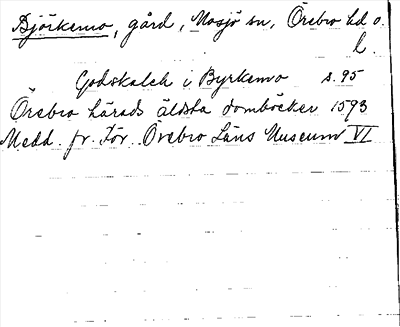 Björkemo, gård, Mosjö sn, Örebro hd o.
l.
Godskalck i Byrkemo s. 95
Örebro härads äldsta domböcker 1593
Medd. fr. För. Örebro Läns Museum VI